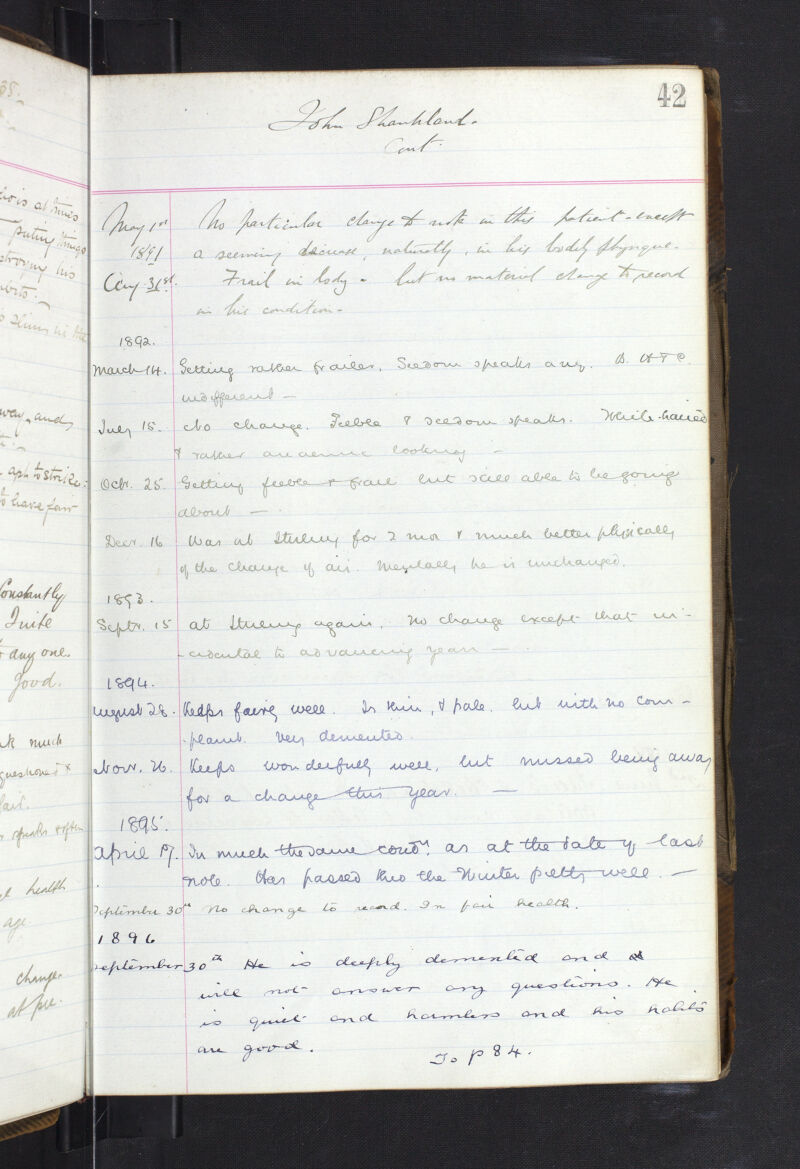 42
John Shankland.
Cont.
May 1st
1891
No particular change to note in this patient - except
a seeming decrease, naturally, in his bodily physique.
Aug 31st.
Frail in body - but no material change to record
in his condition -
1892.
March 14. Getting rather frailer. Seldom speaks any. B. H & C.
indifferent —
July 15. No change. Feeble & seldom speaks. White-haired
& rather anaemic looking —
Octr. 25. Getting feeble & frail but still able to be going
about —
Decr. 16 Was at for 2 mos & much better physically
of the change of air. Mentally he is unchanged.
1893.
Septr. 15 at again. No change except that in-
-cidental to advancing years —.
1894.
August 28. Keeps fairly well. Is thin, & pale. but with no com-
-plaint. Very demented.
Novr. 26. Keeps wonderfully well, but missed being away
for a change this year. —
1895.
April 17. In much the same condn. as at the date of last
note. Has passed thro the Winter pretty well. —
September 30th No change to record. In fair health.
1896
September 30th He is deeply demented and
will not answer any questions. He
is quiet and harmless and his habits
are good.
To p 84.